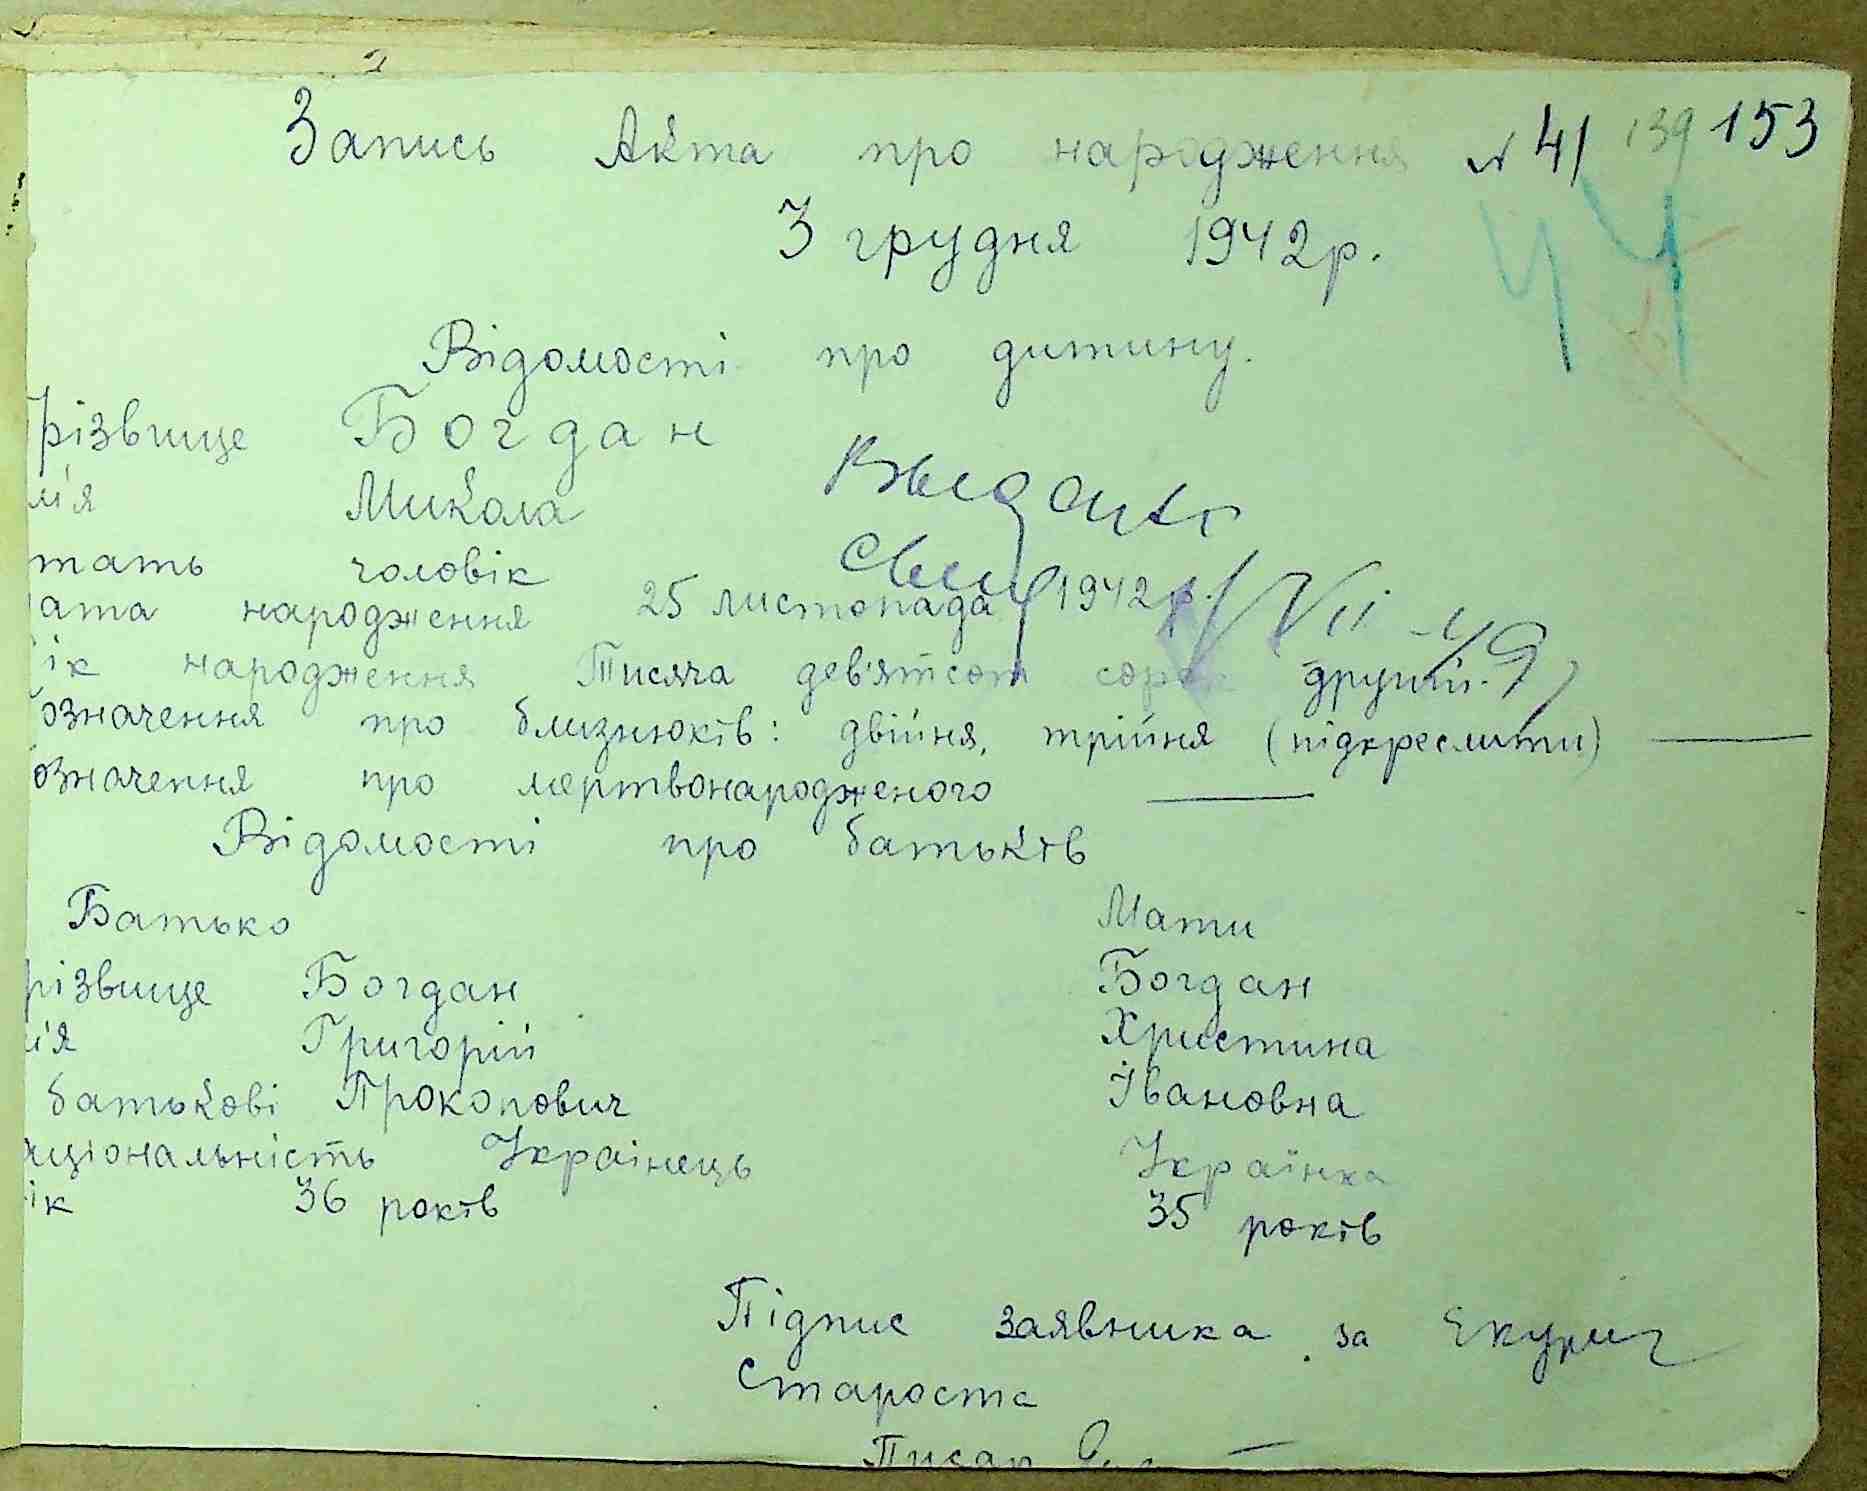 Запись Акта про народження № 41 139 153
3 грудня 1942р.
44
Відомості про дитину.
різвище Богдан
м'я Микола
Выдано
тать чоловік
Свид
ата народження 25 листопада 1942р.
1/VII-49
ік народження Тисяча дев'ятсот сорок другий.
означення про близнюків: двійня, трійня (підкреслити) —
означення про мертвонародженого —
Відомості про батьків
Батько Мати
різвище Богдан Богдан
м'я Григорій Христина
батькові Прокопович Івановна
аціональність Украінець Українка
ік 36 років 35 років
Підпис заявника за
Староста
Писар